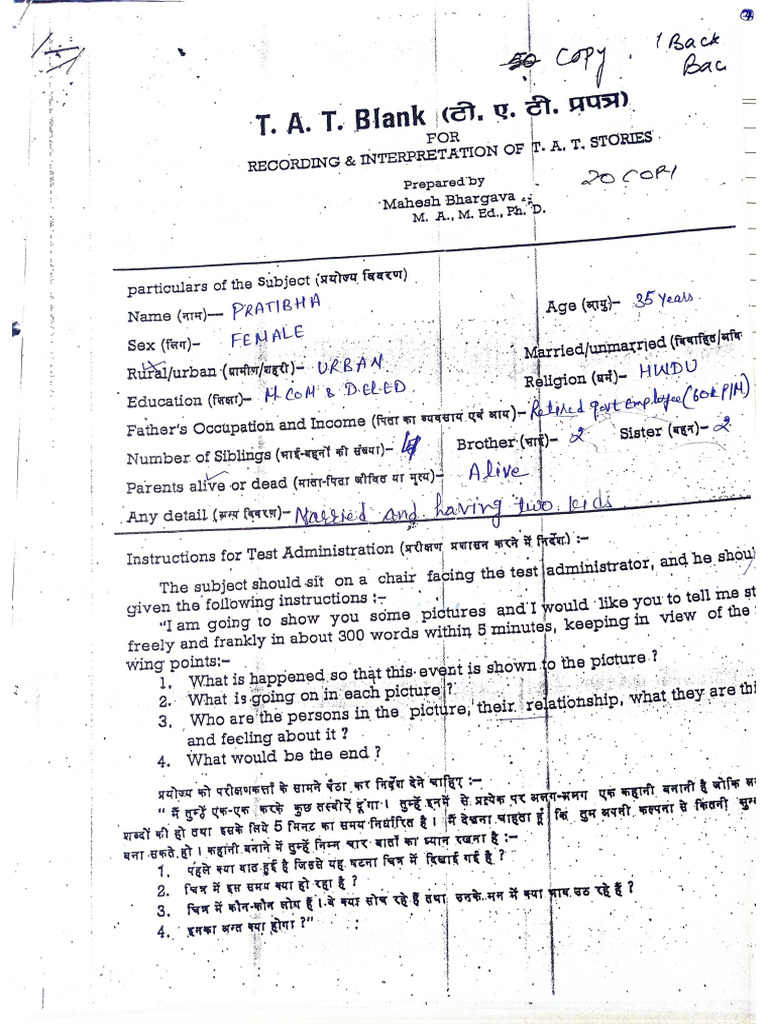 Copy . 1 Back
Bac
T. A. T. Blank (टी. ए. टी. प्रपत्र)
FOR
RECORDING & INTERPRETATION OF T. A. T. STORIES
20 COPY
Prepared by
Mahesh Bhargava
M. A., M. Ed., Ph. D.
particulars of the Subject (प्रयोज्य विवरण)
Name (नाम)— PRATIBHA Age (आयु)- 35 years.
Sex (लिंग)- FEMALE Married/unmarried (विवाहित/अवि
Rural/urban (ग्रामीण/शहरी)- URBAN Religion (धर्म)- HINDU
Education (शिक्षा)- M.COM & D.EL.ED
Father's Occupation and Income (पिता का व्यवसाय एवं आय)- Retired Govt Employee (60k P/M)
Number of Siblings (भाई-बहनों की संख्या)- 4 Brother (भाई)- 2 Sister (बहन)- 2
Parents alive or dead (माता-पिता जीवित या मृत्य)- Alive
Any detail (अन्य विवरण)- Married and having two kids
Instructions for Test Administration (परीक्षण प्रशासन करने में निर्देश) :-
The subject should sit on a chair facing the test administrator, and he shou
given the following instructions :-
"I am going to show you some pictures and I would like you to tell me st
freely and frankly in about 300 words within 5 minutes, keeping in view of the
wing points:-
1. What is happened so that this event is shown to the picture ?
2. What is going on in each picture ?
3. Who are the persons in the picture, their relationship, what they are thi
and feeling about it ?
4. What would be the end ?
प्रयोज्य को परीक्षणकर्त्ता के सामने बैठा कर निर्देश देने चाहिए :-
" मैं तुम्हें एक-एक करके कुछ तस्वीरें दूंगा। तुम्हें इनमें से प्रत्येक पर अलग-अलग एक कहानी बनानी है जोकि
शब्दों की हो तथा इसके लिये 5 मिनट का समय निर्धारित है। मैं देखना चाहता हूं कि तुम अपनी कल्पना से कितनी
बना सकते हो। कहानी बनाने में तुम्हें निम्न चार बातों का ध्यान रखना है :-
1. पहले क्या बात हुई है जिससे यह घटना चित्र में दिखाई गई है ?
2. चित्र में इस समय क्या हो रहा है ?
3. चित्र में कौन-कौन लोग हैं। वे क्या सोच रहे हैं तथा उनके मन में क्या भाव उठ रहे हैं ?
4. इनका अन्त क्या होगा ?"